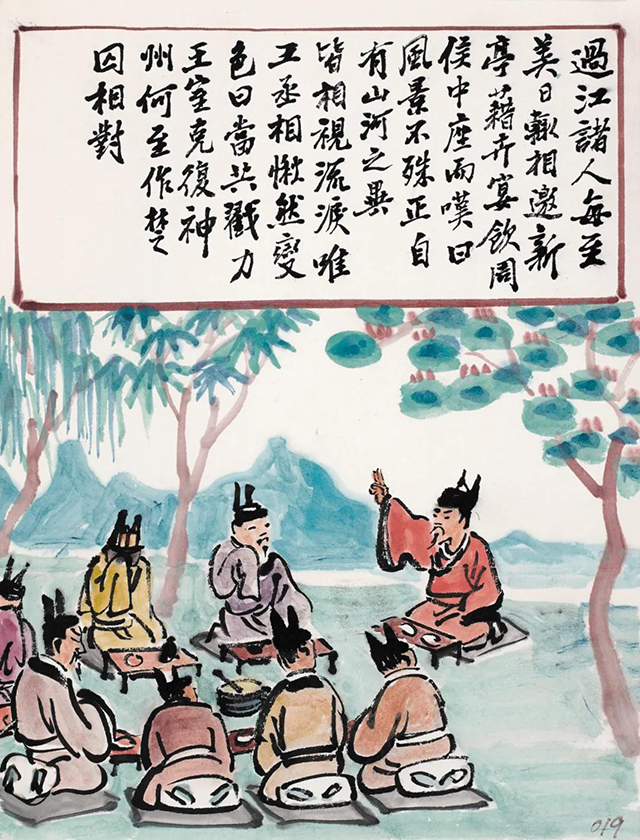 過江諸人每至
美日輙相邀新
亭藉卉宴飲周
侯中座而嘆曰
風景不殊正自
有山河之異
皆相視流淚唯
王丞相愀然變
色曰當共戮力
王室克復神
州何至作楚
囚相對
019